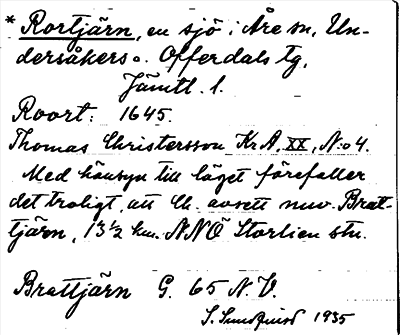 * Rortjärn, en sjö i Åre sn, Un-
dersåkers o. Offerdals tg,
Jämtl. l.
Roort: 1645.
Thomas Christersson Kr A, XX, N:o 4.
Med hänsyn till läget förefaller
det troligt, att Ch. avsett nuv. Brat-
tjärn, 13½ km. NNÖ Storlien stn.
Brattjärn G. 65 N.V.
S. Sundqvist 1935